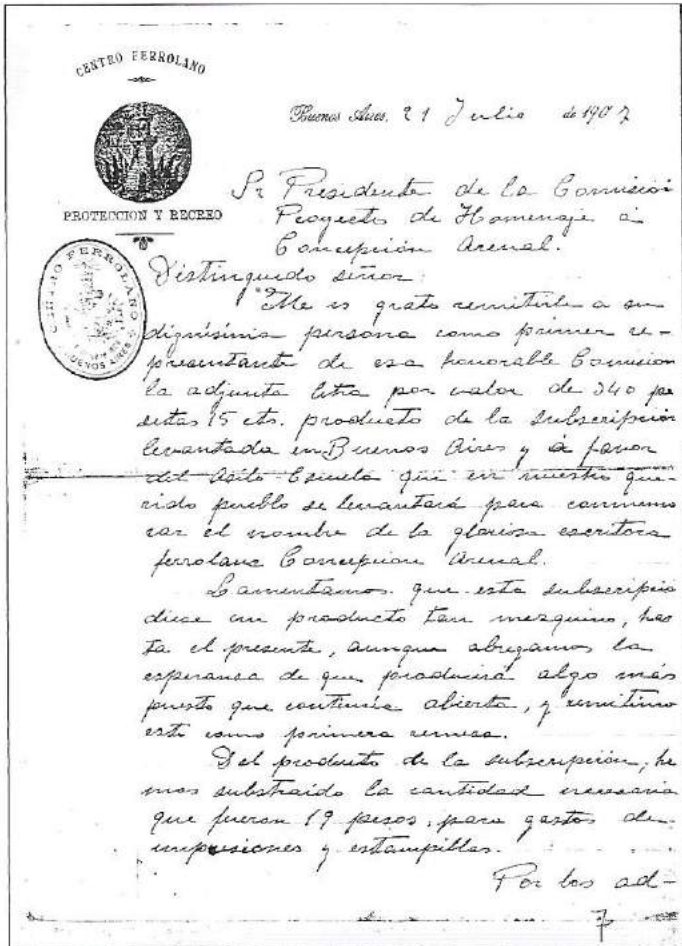 CENTRO FERROLANO
PROTECCION Y RECREO
CENTRO FERROLANO
BUENOS AIRES
Buenos Aires, 21 Julio de 1907
Sr Presidente de la Comisión
Proyecto de Homenaje á
Concepción Arenal.
Distinguido señor:
Me es grato remitirle a su
dignísima persona como primer re-
presentante de esa honorable Comision
la adjunta letra por valor de 340 pe
setas 15 cts. producto de la subscripción
levantada en Buenos Aires y á favor
del Asilo-Escuela que en nuestro que-
rido pueblo se levantará para conmemo
rar el nombre de la gloriosa escritora
ferrolana Concepcion Arenal.
Lamentamos que esta subscripció
diese un producto tan mezquino, has
ta el presente, aunque abrigamos la
esperanza de que producirá algo más
puesto que continúa abierta, y remitimo
esta como primera remesa.
Del producto de la subscripción, he
mos substraido la cantidad necesaria
que fueron 19 pesos, para gastos de
impresiones y estampillas.
Por los ad-
7